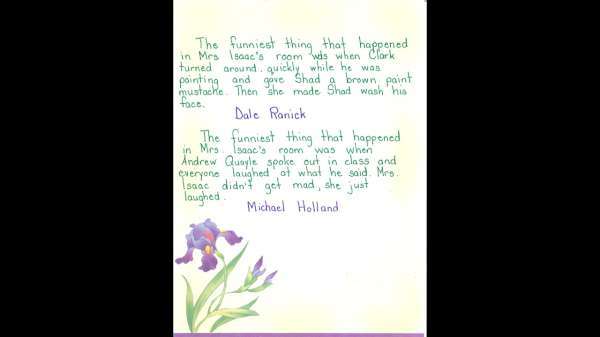 The funniest thing that happened
in Mrs. Isaac's room was when Clark
turned around quickly while he was
painting and gave Shad a brown paint
mustache. Then she made Shad wash his
face.
Dale Ranick
The funniest thing that happened
in Mrs. Isaac's room was when
Andrew Quayle spoke out in class and
everyone laughed at what he said. Mrs.
Isaac didn't get mad, she just
laughed.
Michael Holland